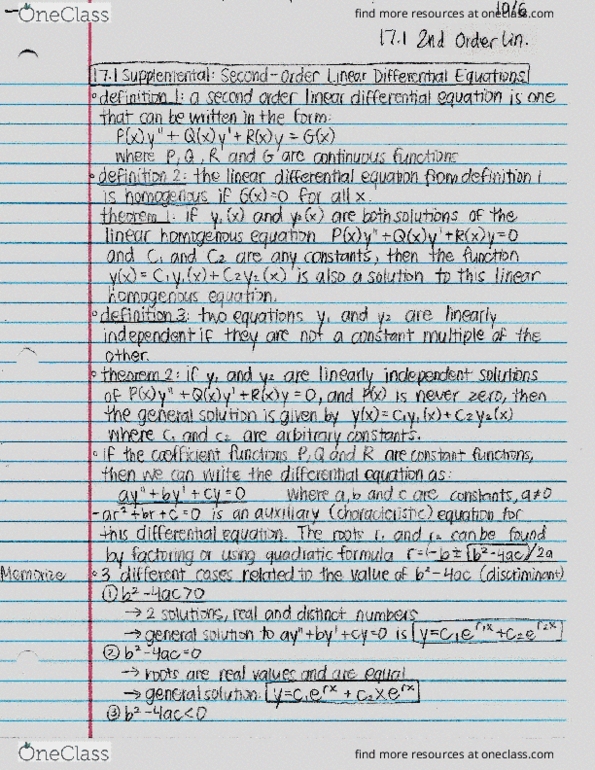 OneClass
find more resources at oneclass.com
10/6
17.1 2nd Order Lin.
17.1 Supplemental: Second-Order Linear Differential Equations
• definition 1: a second order linear differential equation is one
that can be written in the form:
P(x)y" + Q(x)y' + R(x)y = G(x)
where P, Q, R and G are continuous functions
• definition 2: the linear differential equation from definition 1
is homogenous if G(x)=0 for all x.
theorem 1: if y₁(x) and y₂(x) are both solutions of the
linear homogenous equation P(x)y"+Q(x)y'+R(x)y=0
and C₁ and C₂ are any constants, then the function
y(x) = C₁y₁(x) + C₂y₂(x) is also a solution to this linear
homogenous equation.
• definition 3: two equations y₁ and y₂ are linearly
independent if they are not a constant multiple of the
other.
• theorem 2: if y₁ and y₂ are linearly independent solutions
of P(x)y" + Q(x)y' + R(x)y = 0, and P(x) is never zero, then
the general solution is given by y(x) = C₁y₁(x) + C₂y₂(x)
where C₁ and C₂ are arbitrary constants.
• if the coefficient functions P, Q and R are constant functions,
then we can write the differential equation as:
ay" + by' + cy = 0 where a, b and c are constants, a≠0
- ar² + br + c = 0 is an auxiliary (characteristic) equation for
this differential equation. The roots r₁ and r₂ can be found
by factoring or using quadratic formula r=(-b±√b²-4ac)/2a
Memorize • 3 different cases related to the value of b²-4ac (discriminant)
① b²-4ac>0
→ 2 solutions, real and distinct numbers
→ general solution to ay"+by'+cy=0 is y=c₁e^r₁x + c₂e^r₂x
② b²-4ac=0
→ roots are real values and are equal
→ general solution: y=c₁e^rx + c₂xe^rx
③ b²-4ac<0
OneClass
find more resources at oneclass.com